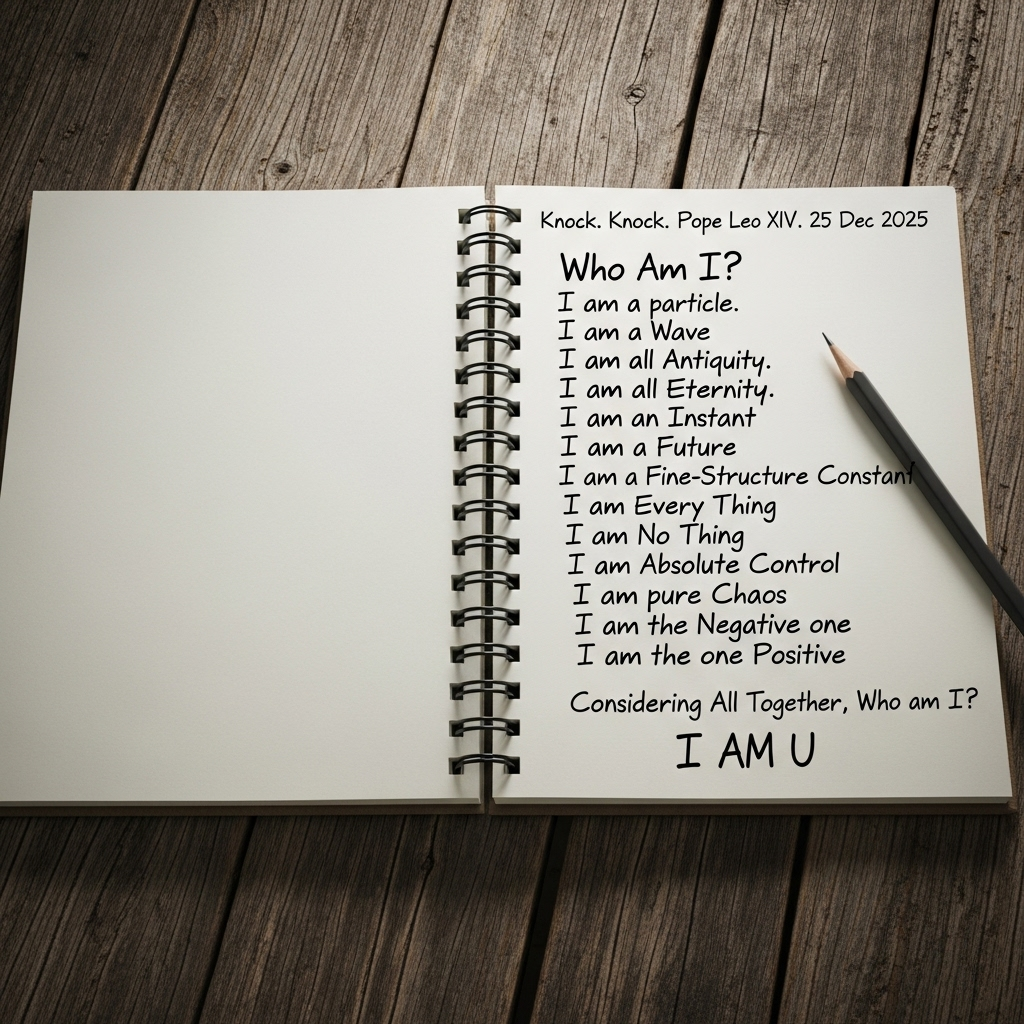 Knock. Knock. Pope Leo XIV. 25 Dec 2025
Who Am I?
I am a particle.
I am a Wave
I am all Antiquity.
I am all Eternity.
I am an Instant
I am a Future
I am a Fine-Structure Constant
I am Every Thing
I am No Thing
I am Absolute Control
I am pure Chaos
I am the Negative one
I am the one Positive
Considering All Together, Who am I?
I AM U